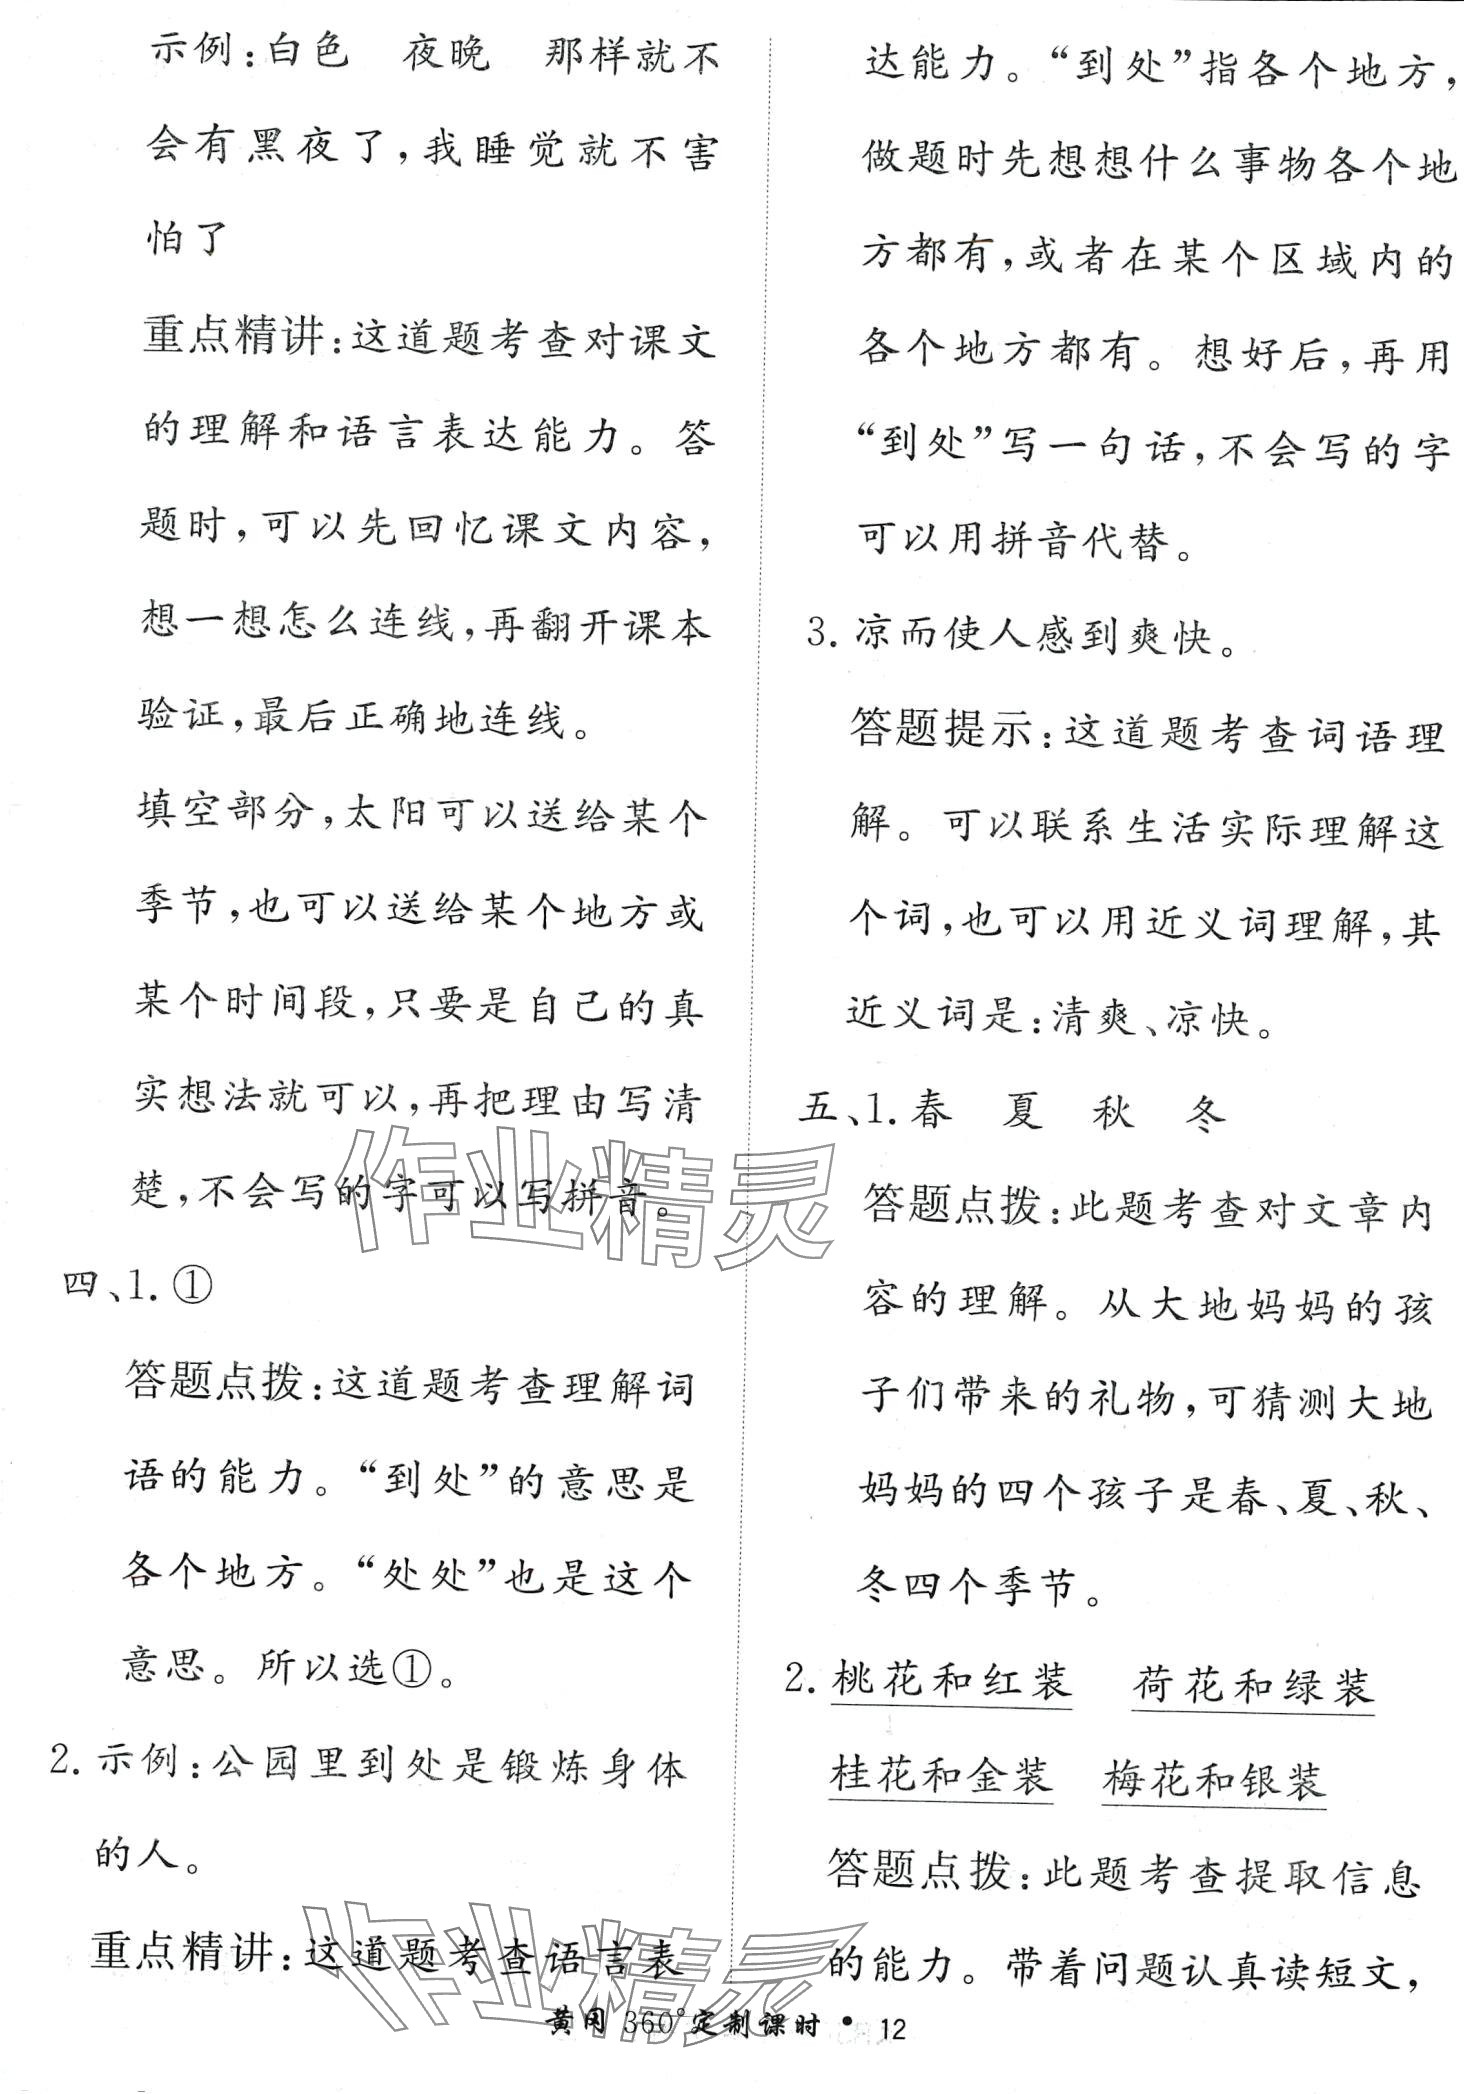 示例:白色　夜晚　那样就不
会有黑夜了,我睡觉就不害
怕了
重点精讲:这道题考查对课文
的理解和语言表达能力。答
题时,可以先回忆课文内容,
想一想怎么连线,再翻开课本
验证,最后正确地连线。
填空部分,太阳可以送给某个
季节,也可以送给某个地方或
某个时间段,只要是自己的真
实想法就可以,再把理由写清
楚,不会写的字可以写拼音。
四、1.①
答题点拨:这道题考查理解词
语的能力。“到处”的意思是
各个地方。“处处”也是这个
意思。所以选①。
2.示例:公园里到处是锻炼身体
的人。
重点精讲:这道题考查语言表
达能力。“到处”指各个地方,
做题时先想想什么事物各个地
方都有,或者在某个区域内的
各个地方都有。想好后,再用
“到处”写一句话,不会写的字
可以用拼音代替。
3.凉而使人感到爽快。
答题提示:这道题考查词语理
解。可以联系生活实际理解这
个词,也可以用近义词理解,其
近义词是:清爽、凉快。
五、1.春　夏　秋　冬
答题点拨:此题考查对文章内
容的理解。从大地妈妈的孩
子们带来的礼物,可猜测大地
妈妈的四个孩子是春、夏、秋、
冬四个季节。
2.桃花和红装　荷花和绿装
桂花和金装　梅花和银装
答题点拨:此题考查提取信息
的能力。带着问题认真读短文,
作业精灵
作业精灵
黄冈 360°定制课时 • 12